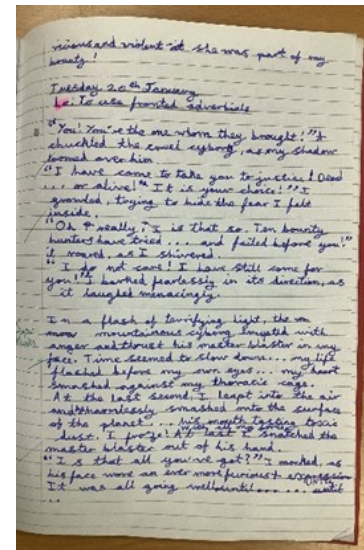 vicious and violent it she was part of my
bounty!
Tuesday 20th January
Lc: To use fronted adverbials
"You! You're the one whom they brought!"
chuckled the cruel cyborg, as my shadow
loomed over him.
"I have come to take you to justice! Dead
... or alive!" It is your choice!" I
growled, trying to hide the fear I felt
inside.
"Oh really, is that so. Ten bounty
hunters have tried ... and failed before you!"
it roared, as I shivered.
"I do not care! I have still come for
you!" I barked fearlessly in its direction, as
it laughed menacingly.
In a flash of terrifying light, the
mountainous cyborg erupted with
anger and thrust his master blaster in my
face. Time seemed to slow down... my life
flashed before my own eyes... my heart
smashed against my thoracic cage.
At the last second, I leapt into the air
and harmlessly smashed onto the surface
of the planet ... his mouth tasting toxic
dust. I froze! At last I snatched the
master blaster out of his hand.
"Is that all you've got?" I mocked, as
his face wore an ever more furious expression
It was all going well until ...... until
...